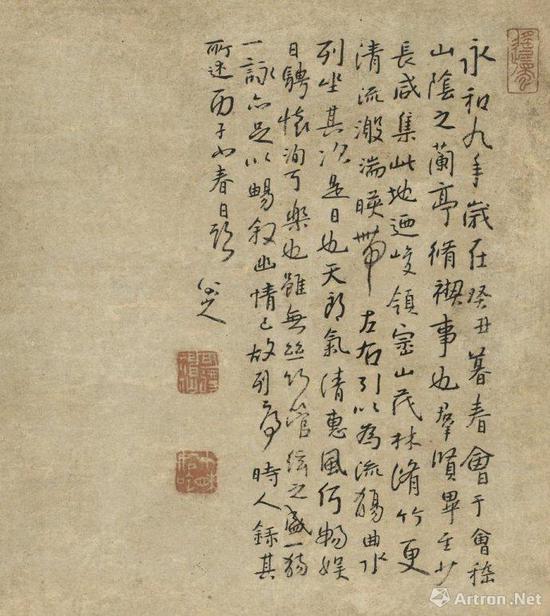 永和九年歲在癸丑暮春會于會稽
山陰之蘭亭脩禊事也羣賢畢至少
長咸集此地迺峻領崇山茂林脩竹更
清流激湍暎帶左右引以為流觴曲水
列坐其次是日也天朗氣清惠風和暢娛
目騁懷洵可樂也雖無絲竹管絃之盛一觴
一詠亦足以暢敘幽情已故列序時人錄其
所述丙子小春日題
八大山人
雅昌艺术网
Artron.Net